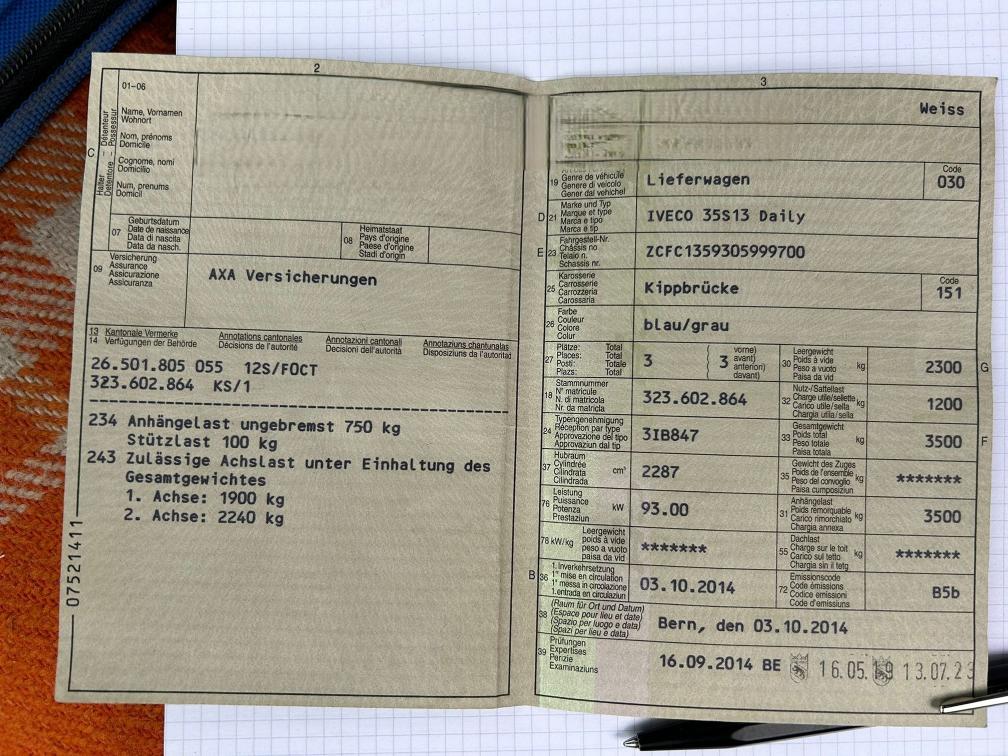 2
01-06
C
Halter
Détenteur
Detentore
Possessur
Name, Vornamen
Wohnort
Nom, prénoms
Domicile
Cognome, nomi
Domicilio
Num, prenums
Domicil
07
Geburtsdatum
Date de naissance
Data di nascita
Data da nasch.
08
Heimatstaat
Pays d'origine
Paese d'origine
Stadi d'origin
09
Versicherung
Assurance
Assicurazione
Assicuranza
AXA Versicherungen
13
14
Kantonale Vermerke
Verfügungen der Behörde
Annotations cantonales
Décisions de l'autorité
Annotazioni cantonali
Decisioni dell'autorità
Annotaziuns chantunalas
Disposiziuns da l'autoritad
26.501.805 055 12S/FOCT
323.602.864 KS/1
234 Anhängelast ungebremst 750 kg
Stützlast 100 kg
243 Zulässige Achslast unter Einhaltung des
Gesamtgewichtes
1. Achse: 1900 kg
2. Achse: 2240 kg
07521411
3
Weiss
19
Genre de véhicule
Genere di veicolo
Gener dal vehichel
Lieferwagen
Code
030
D
21
Marke und Typ
Marque et type
Marca e tipo
Marca e tip
IVECO 35S13 Daily
E
23
Fahrgestell-Nr.
Châssis no
Telaio n.
Schassis nr.
ZCFC1359305999700
25
Karosserie
Carrosserie
Carrozzeria
Carossaria
Kippbrücke
Code
151
26
Farbe
Couleur
Colore
Colur
blau/grau
27
Plätze: Total
Places: Total
Posti: Totale
Plazs: Total
3
3
vorne)
avant)
anteriori)
davant)
30
Leergewicht
Poids à vide
Peso a vuoto
Paisa da vid
kg
2300
G
18
Stammnummer
N° matricule
N. di matricola
Nr. da matricla
323.602.864
32
Nutz-/Sattellast
Charge utile/sellette
Carico utile/sella
Chargia utila/sella
kg
1200
24
Typengenehmigung
Réception par type
Approvazione del tipo
Approvaziun dal tip
3IB847
33
Gesamtgewicht
Poids total
Peso totale
Paisa totala
kg
3500
F
37
Hubraum
Cylindrée
Cilindrata
Cilindrada
cm³
2287
35
Gewicht des Zuges
Poids de l'ensemble
Peso del convoglio
Paisa cumposiziun
kg
*******
76
Leistung
Puissance
Potenza
Prestaziun
kW
93.00
31
Anhängelast
Poids remorquable
Carico rimorchiato
Chargia annexa
kg
3500
78 kW/kg
Leergewicht
poids à vide
peso a vuoto
paisa da vid
*******
55
Dachlast
Charge sur le toit
Carico sul tetto
Chargia sin il tetg
kg
*******
B
36
1. Inverkehrsetzung
1re mise en circulation
1a messa in circolazione
1. entrada en circulaziun
03.10.2014
72
Emissionscode
Code émissions
Codice emissioni
Code d'emissiuns
B5b
38
(Raum für Ort und Datum)
(Espace pour lieu et date)
(Spazio per luogo e data)
(Spazi per lieu e data)
Bern, den 03.10.2014
39
Prüfungen
Expertises
Perizie
Examinaziuns
16.09.2014 BE
16.05.19
13.07.23